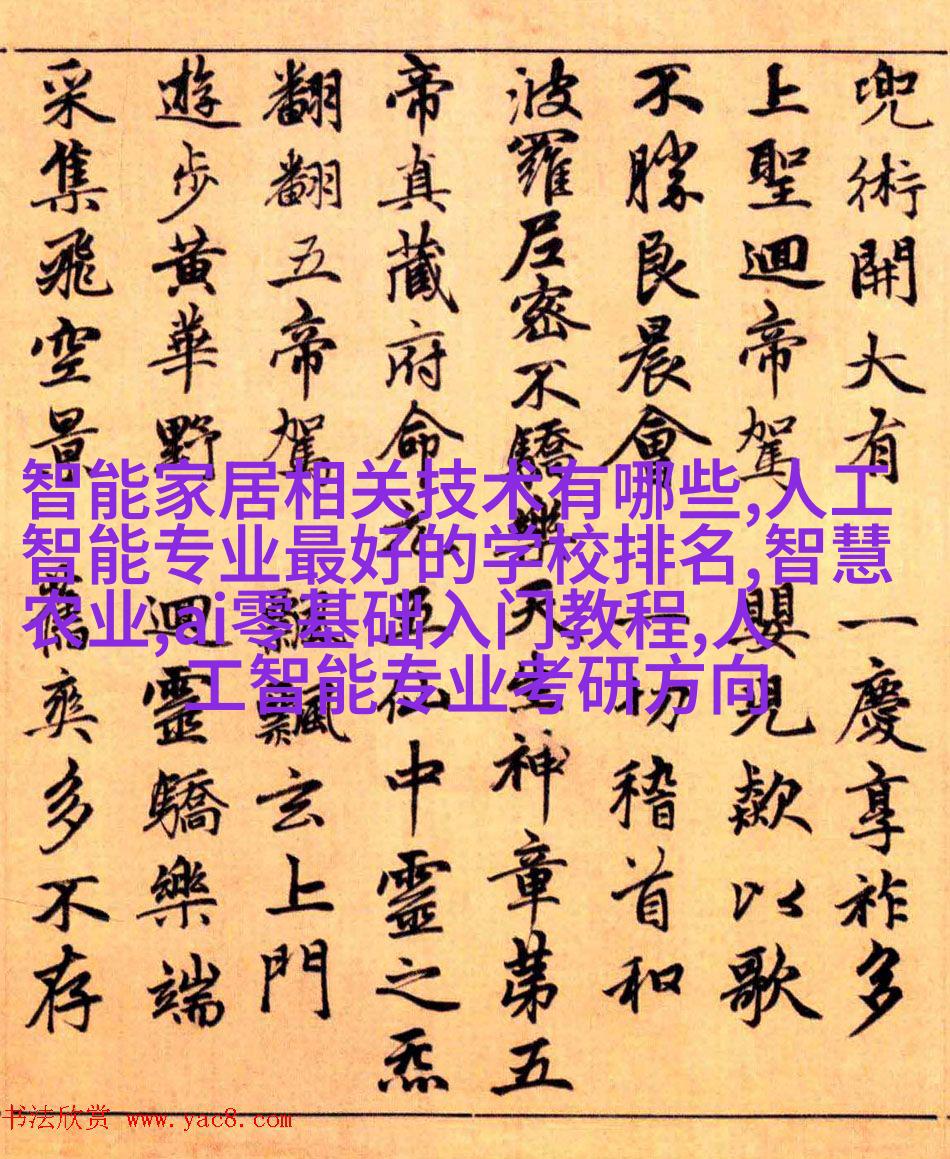 兜術開大有 一慶享祚多
上聖迴帝駕 嬰兒歘以歌
不勝良晨會 一切稽首和
波羅尼密不驕樂天 神章第五
帝真藏府命 仙中靈之炁
翻翻五帝駕 飄飄玄上門
遊步黃華野 迴靈驕樂端
采集飛空景 爽多不存
智能家居相关技术有哪些,人工
智能专业最好的学校排名,智慧
农业,ai零基础入门教程,人
工智能专业考研方向
书法欣赏 www.yac8.com